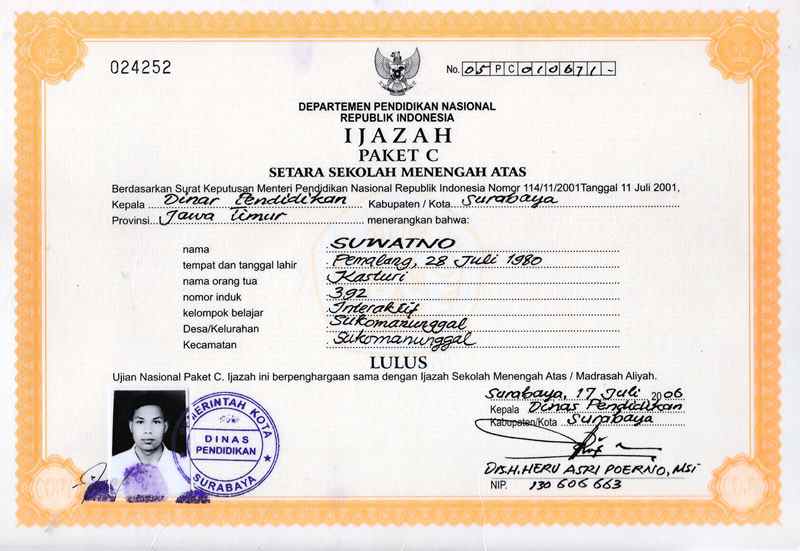 024252
No. 05PC010671-
DEPARTEMEN PENDIDIKAN NASIONAL
REPUBLIK INDONESIA
IJAZAH
PAKET C
SETARA SEKOLAH MENENGAH ATAS
Berdasarkan Surat Keputusan Menteri Pendidikan Nasional Republik Indonesia Nomor 114/11/2001Tanggal 11 Juli 2001,
Kepala Dinas Pendidikan Kabupaten / Kota Surabaya
Provinsi Jawa Timur menerangkan bahwa:
nama SUWATNO
tempat dan tanggal lahir Pemalang, 28 Juli 1980
nama orang tua Kasturi
nomor induk 392
kelompok belajar Interaktif
Desa/Kelurahan Sukomanunggal
Kecamatan Sukomanunggal
LULUS
Ujian Nasional Paket C. Ijazah ini berpenghargaan sama dengan Ijazah Sekolah Menengah Atas / Madrasah Aliyah.
Surabaya, 17 Juli 2006
Kepala Dinas Pendidikan
Kabupaten/Kota Surabaya
DRS.H.HERU ASRI POERNO, MSi
NIP. 130 606 663
PEMERINTAH KOTA
DINAS
PENDIDIKAN
SURABAYA